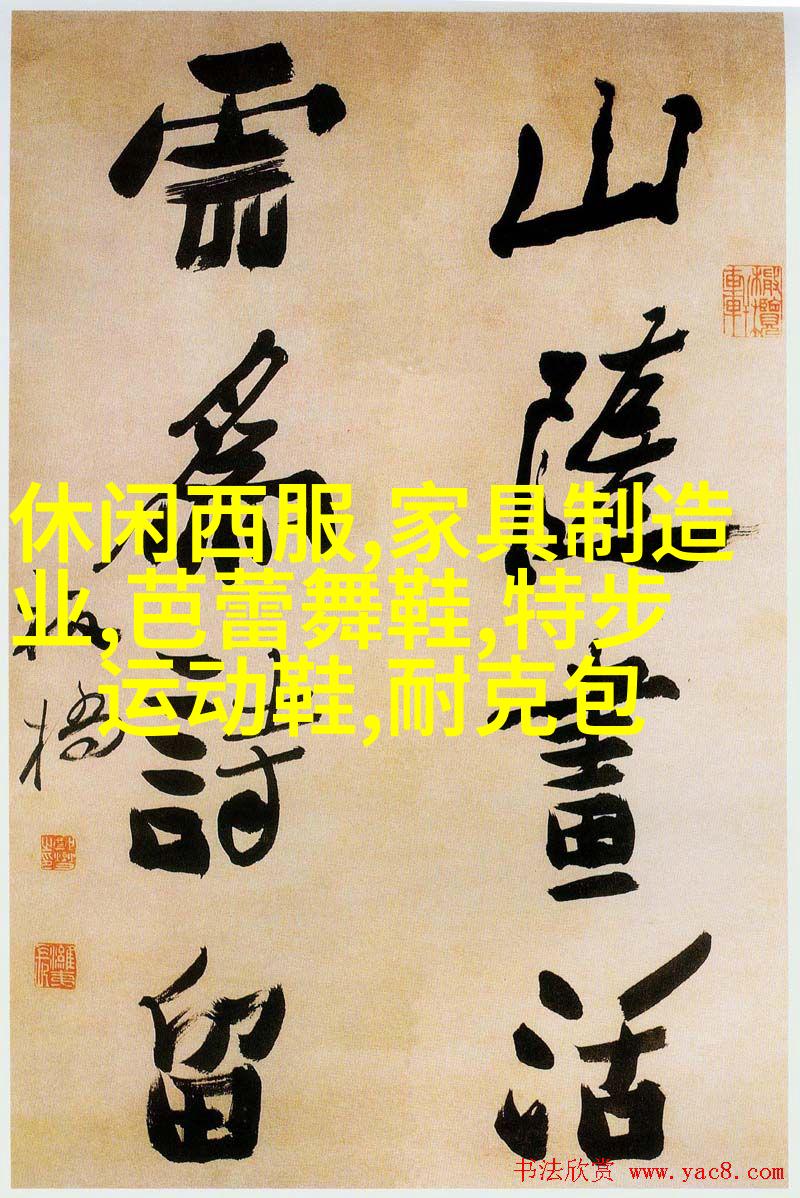 山隨畫活
雲為詩留
板橋
休闲西服,家具制造
业,芭蕾舞鞋,特步
运动鞋,耐克包
书法欣赏 www.yac8.com